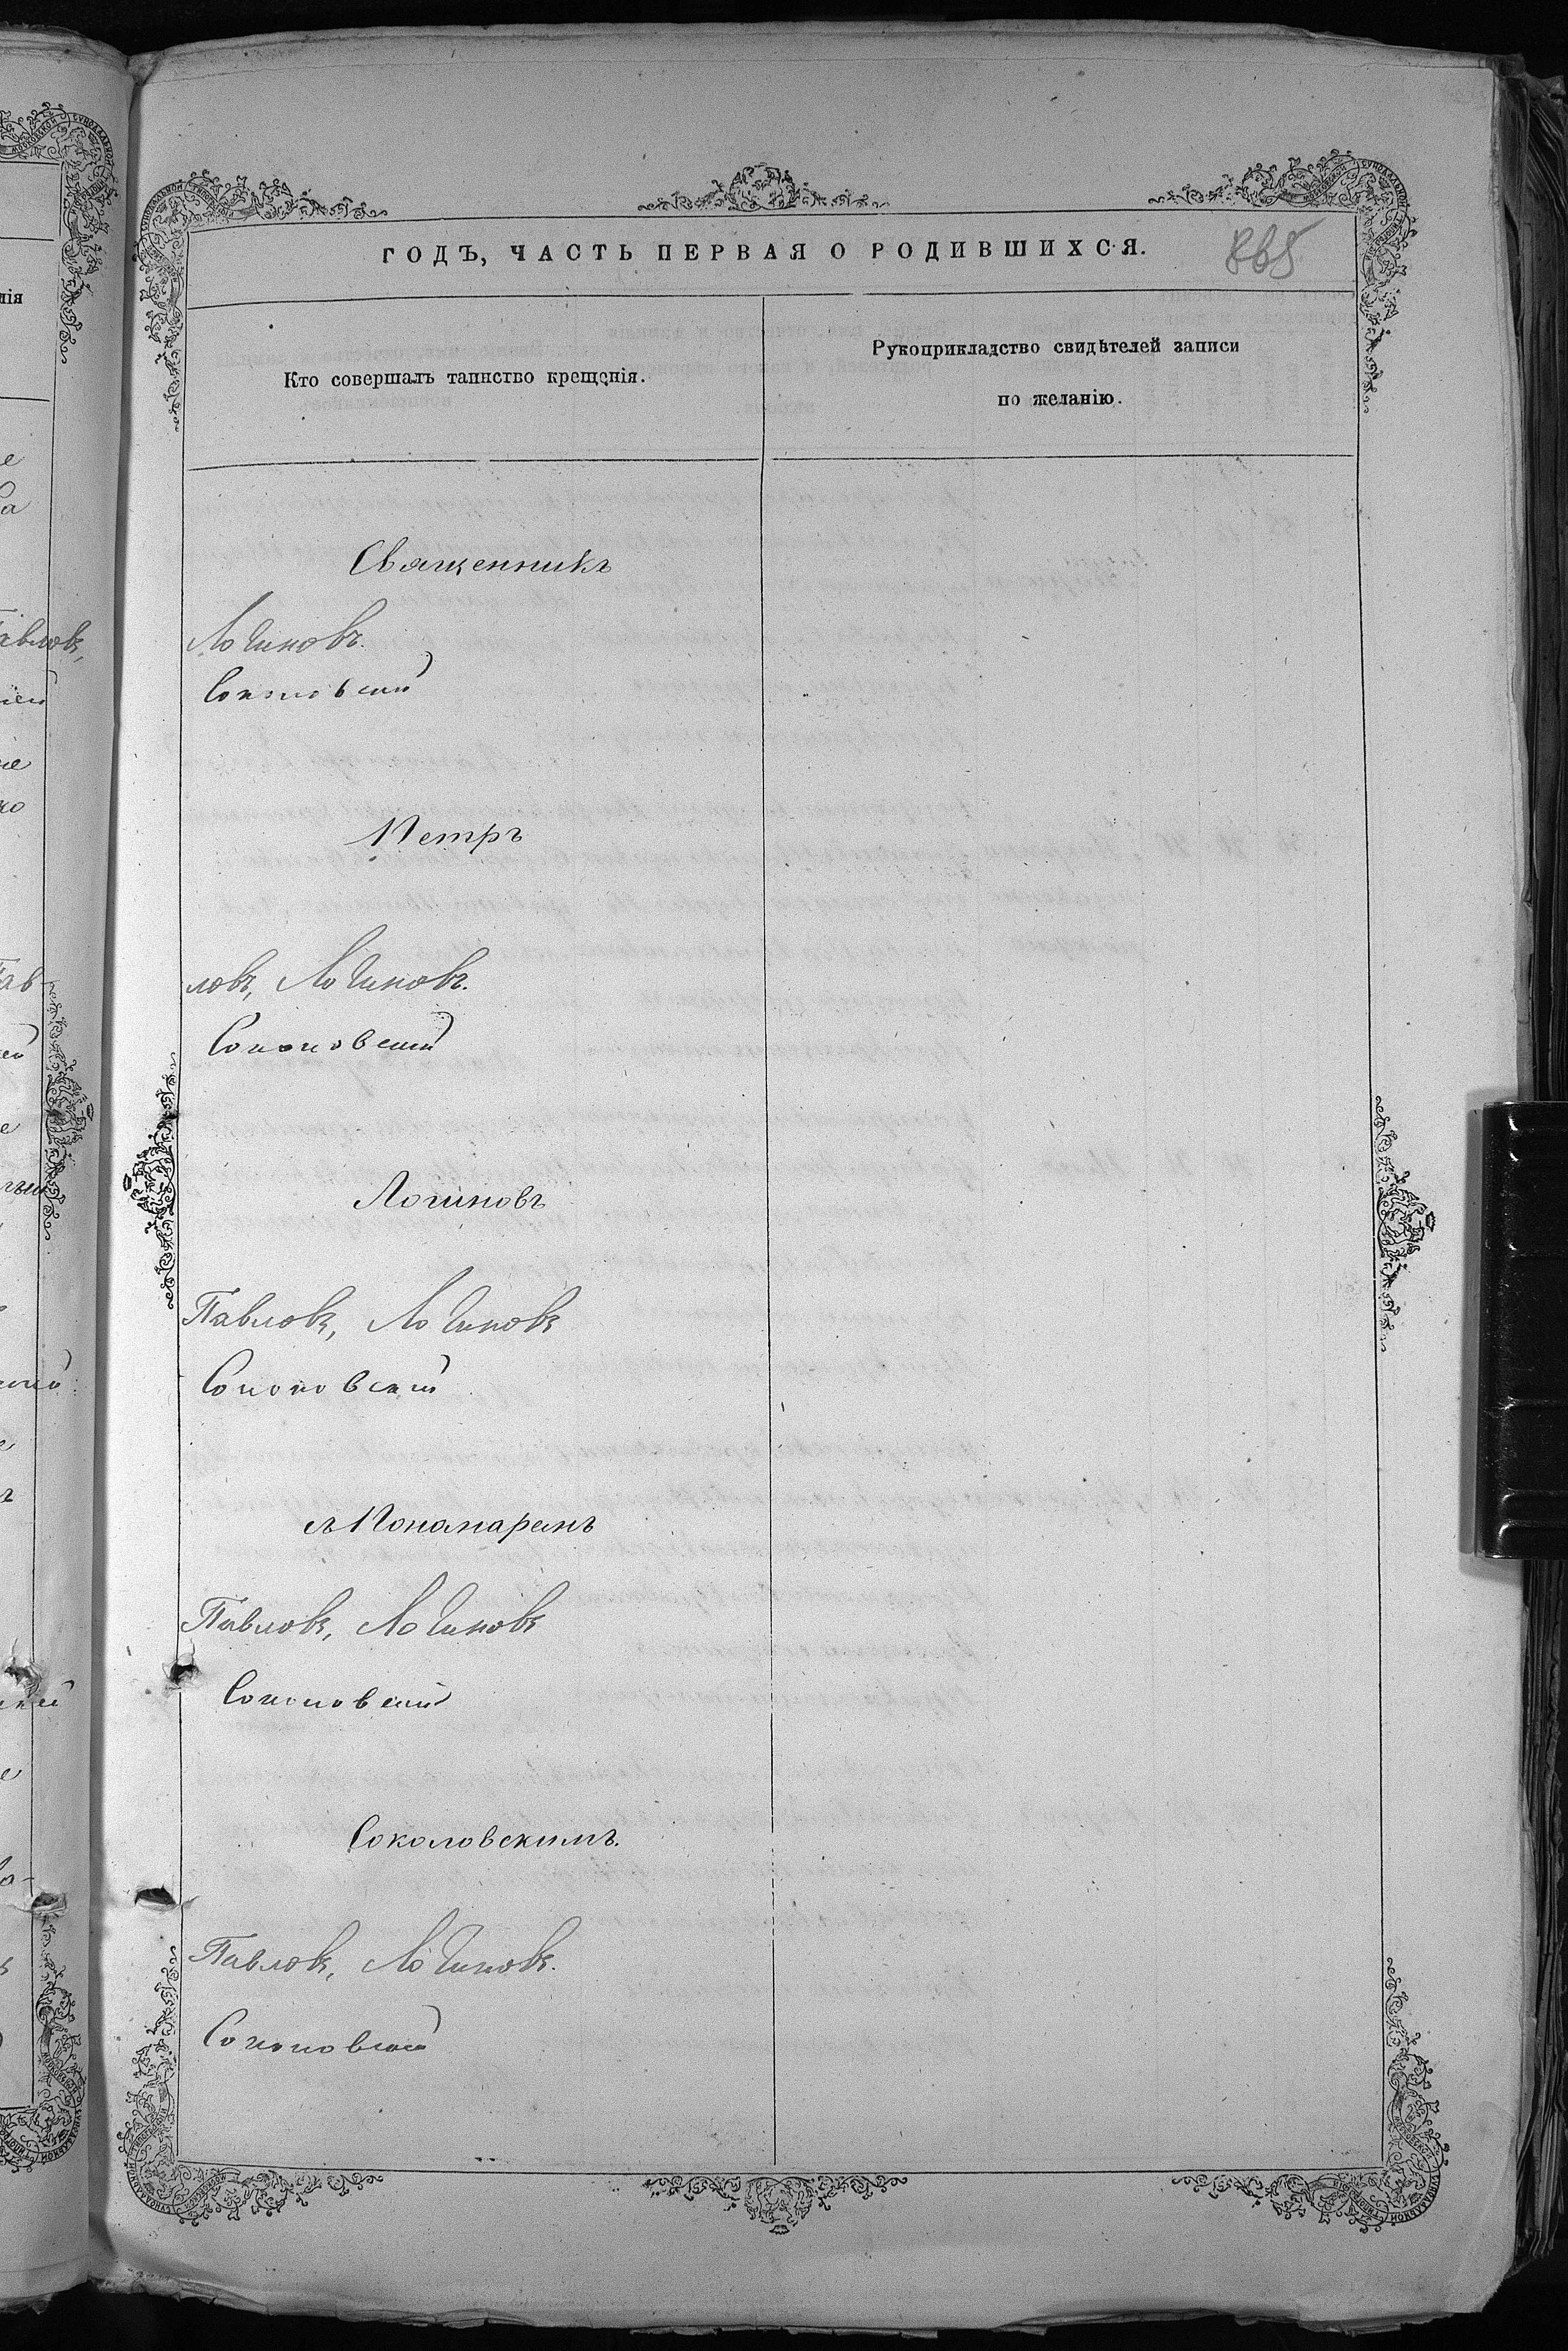 ГОДЪ, ЧАСТЬ ПЕРВАЯ О РОДИВШИХСЯ.
865
Кто совершалъ таинство крещенія.
Рукоприкладство свидѣтелей записи
по желанію.
Священникъ
Логиновъ.
Соколовский
Петръ
ловъ, Логиновъ.
Соколовский
Логиновъ
Павловъ, Логиновъ
Соколовский
съ Пономаремъ
Павловъ, Логиновъ
Соколовский
Соколовскимъ.
Павловъ, Логиновъ.
Соколовский